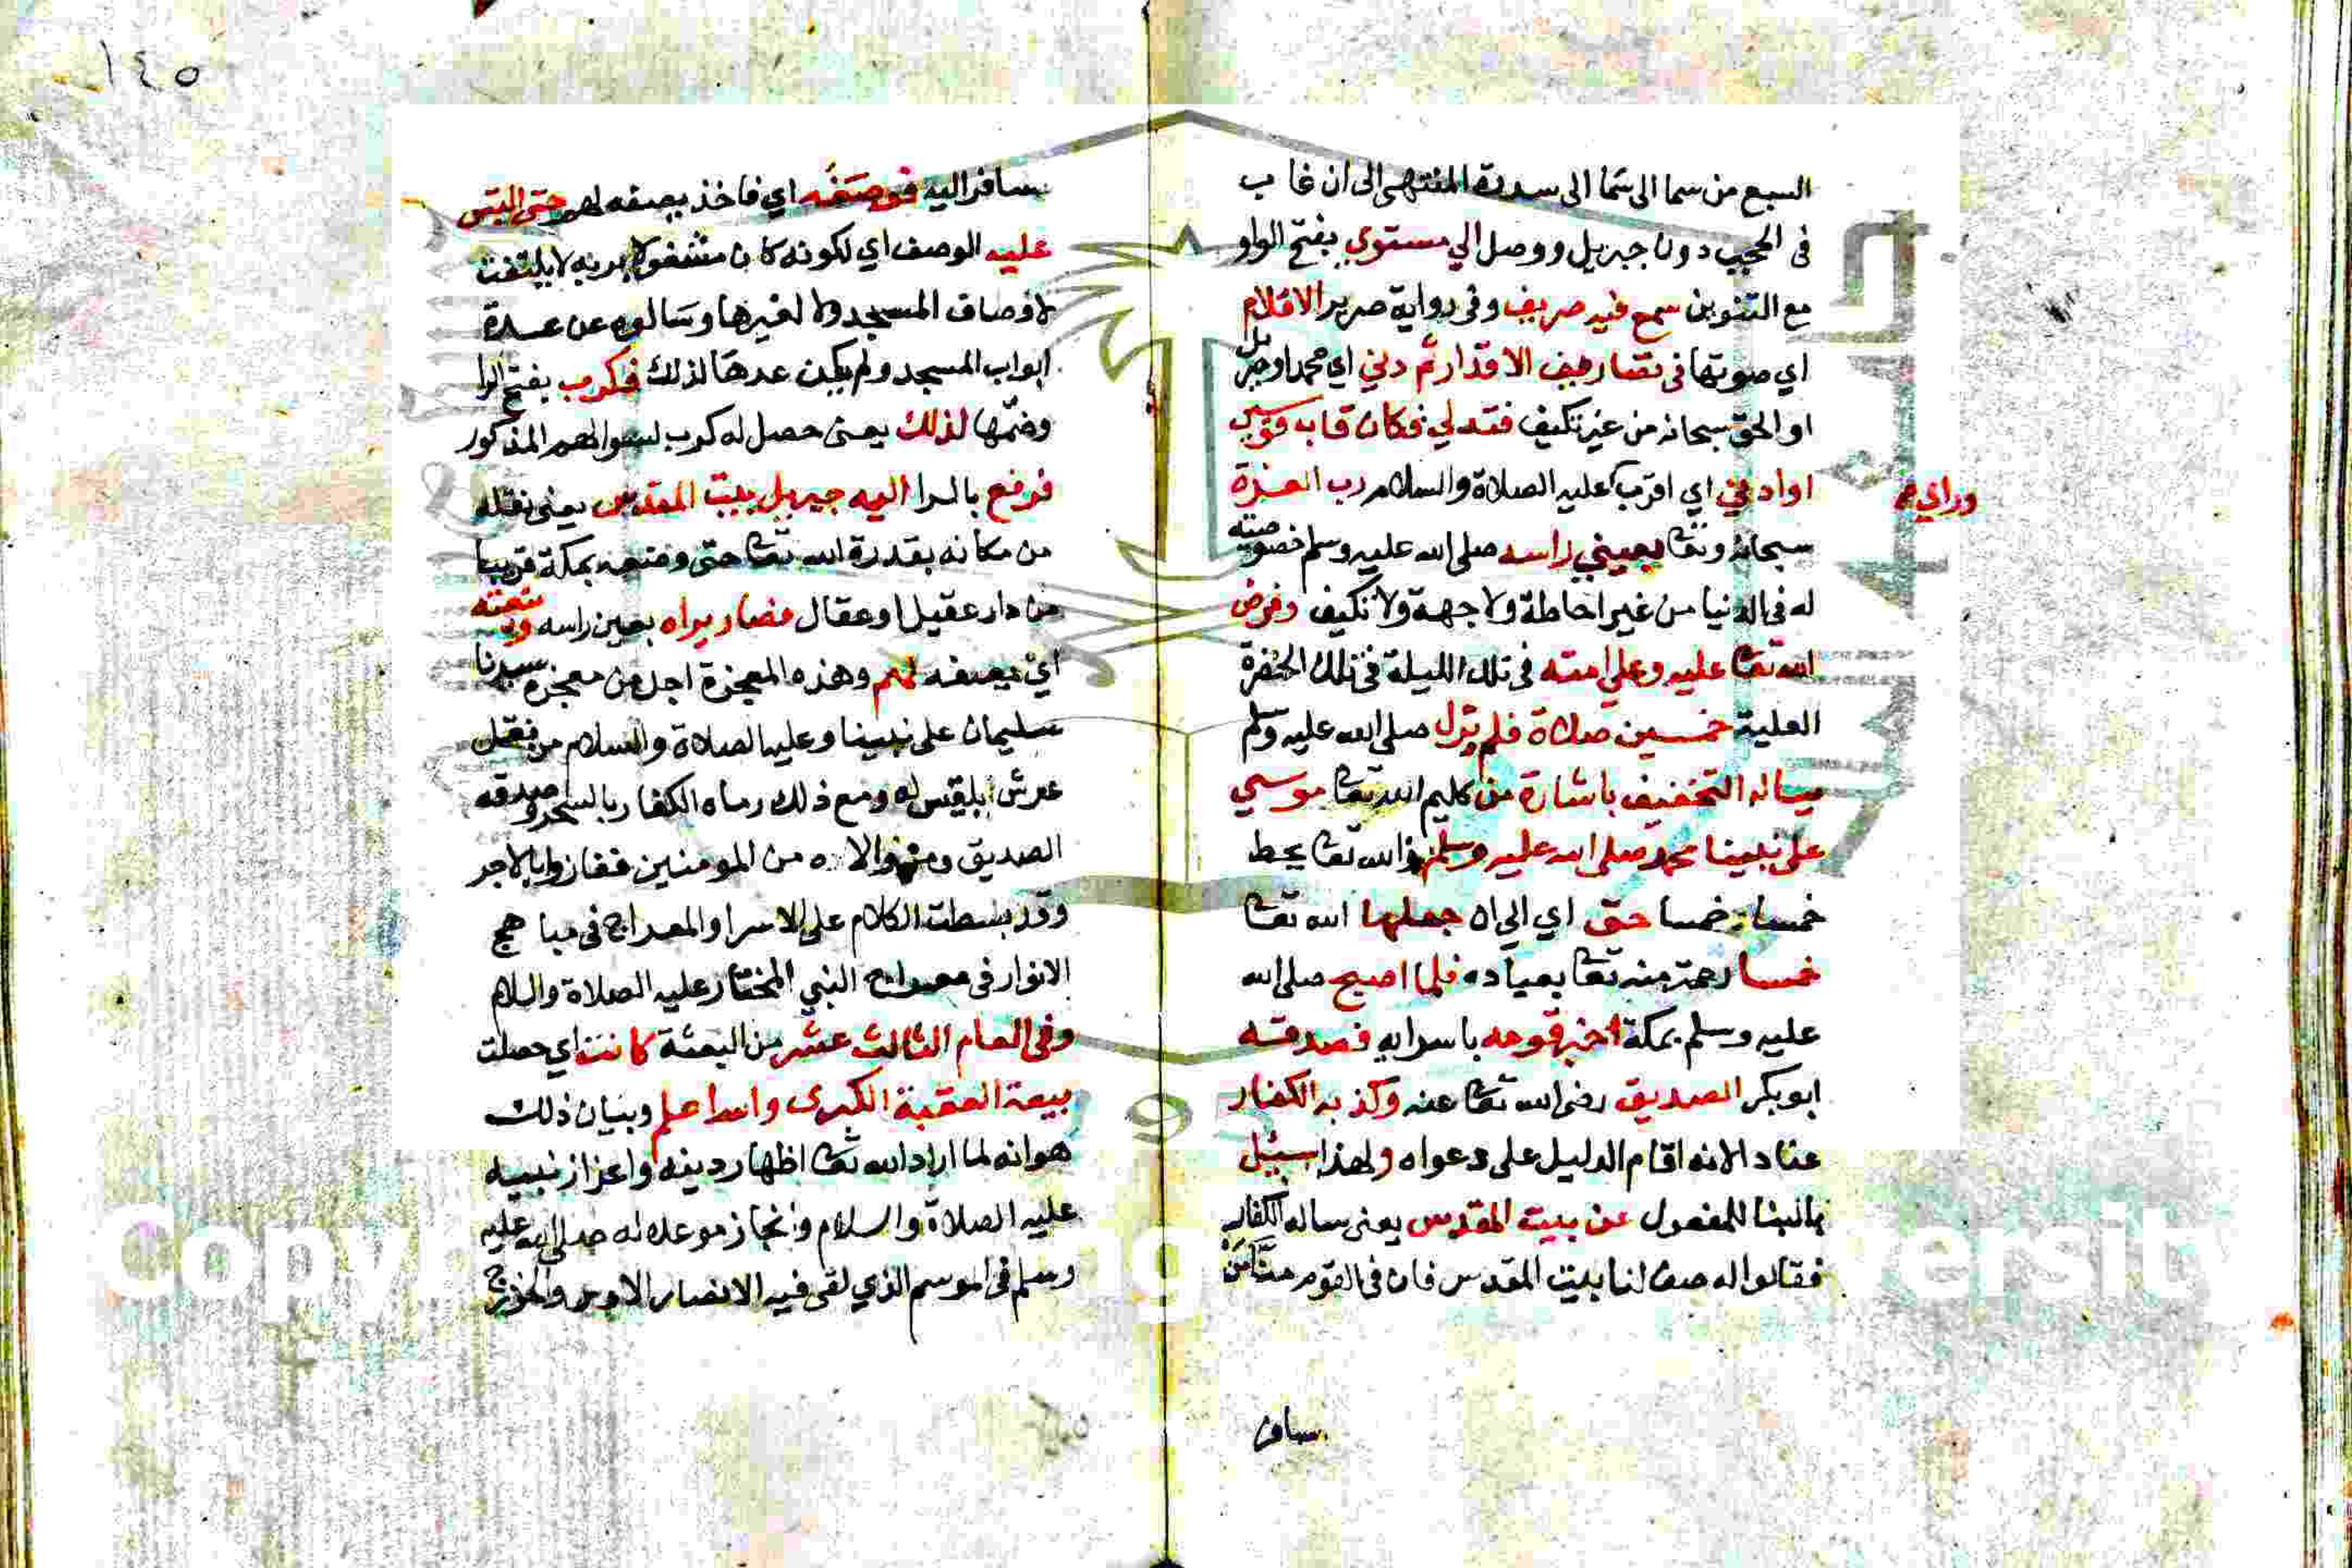 السبع من سما الى سما الى سدرة المنتهى الى ان غاب
فى الحجب دونا جبريل ووصل الي مستوي بفتح الواو
مع التنوين سمع فيه صريف وفى رواية صرير الاقلام
اي صوتها فى تصاريف الاقدار ثم دني اي محمد او جبريل
او الحق سبحانه من غير تكيف فتدلي فكان قاب قوسين
او ادني اي اقرب عليه الصلاة والسلام رب العزة
وراي محمد
سبحانه وتعا بعيني راسه صلى الله عليه وسلم خصوصية
له فى الدنيا من غير احاطة ولا جهة ولا تكيف وفرض
الله تعا عليه وعلي امته فى تلك الليلة فى تلك الحضرة
العلية خمسين صلاة فلم يزل صلى الله عليه وسلم
يساله التخفيف باشارة من كليم الله تعا موسي
على نبينا محمد صلى الله عليه وسلم والله تعا يحط
خمسا خمسا حتى اي الى ان جعلها الله تعا
خمسا رحمة منه تعا بعباده فلما اصبح صلى الله
عليه وسلم بمكة اخبر قومه باسرايه فصدقه
ابو بكر الصديق رضى الله تعا عنه وكذبه الكفار
عنادا لانه اقام الدليل على دعواه ولهذا سيئل
بالبنا للمفعول عن بيت المقدس يعنى ساله الكفار
فقالوا له صف لنا بيت المقدس فان فى القوم من
سافر
١٤٥
سافر اليه فوصفه اي فاخذ يصفه لهم حتى التبس
عليه الوصف اي لكونه كان مشغولا بربه لا يلتفت
لاوصاف المسجد ولا لغيرها وسالوه عن عدة
ابواب المسجد ولم يكن عدها لذلك فكرب بفتح الرا
وضمها لذلك يعنى حصل له كرب لسوالهم المذكور
فرفع بالرا اليه جبريل بيت المقدس يعنى نقله
من مكانه بقدرة الله تعا حتى وضعه بمكة قريبا
من دار عقيل او عقال فصار يراه بعين راسه وينعته
اي يصفه لهم وهذه المعجزة اجل من معجزة سيدنا
سليمان على نبينا وعليه الصلاة والسلام من نقل
عرش بلقيس له ومع ذلك رماه الكفار بالسحر وصدقه
الصديق ومن والاه من المومنين ففازوا بالاجر
وقد بسطت الكلام على الاسرا والمعراج فى مباهج
الانوار فى معراج النبي المختار عليه الصلاة والسلام
وفى العام الثالث عشر من البعثة كانت اي حصلت
بيعة العقبة الكبرى والله اعلم وبيان ذلك
هو انه لما اراد الله تعا اظهار دينه واعزاز نبيه
عليه الصلاة والسلام وانجاز موعده له صلى الله عليه
وسلم فى الموسم الذي لقى فيه الانصار الاوس والخزرج